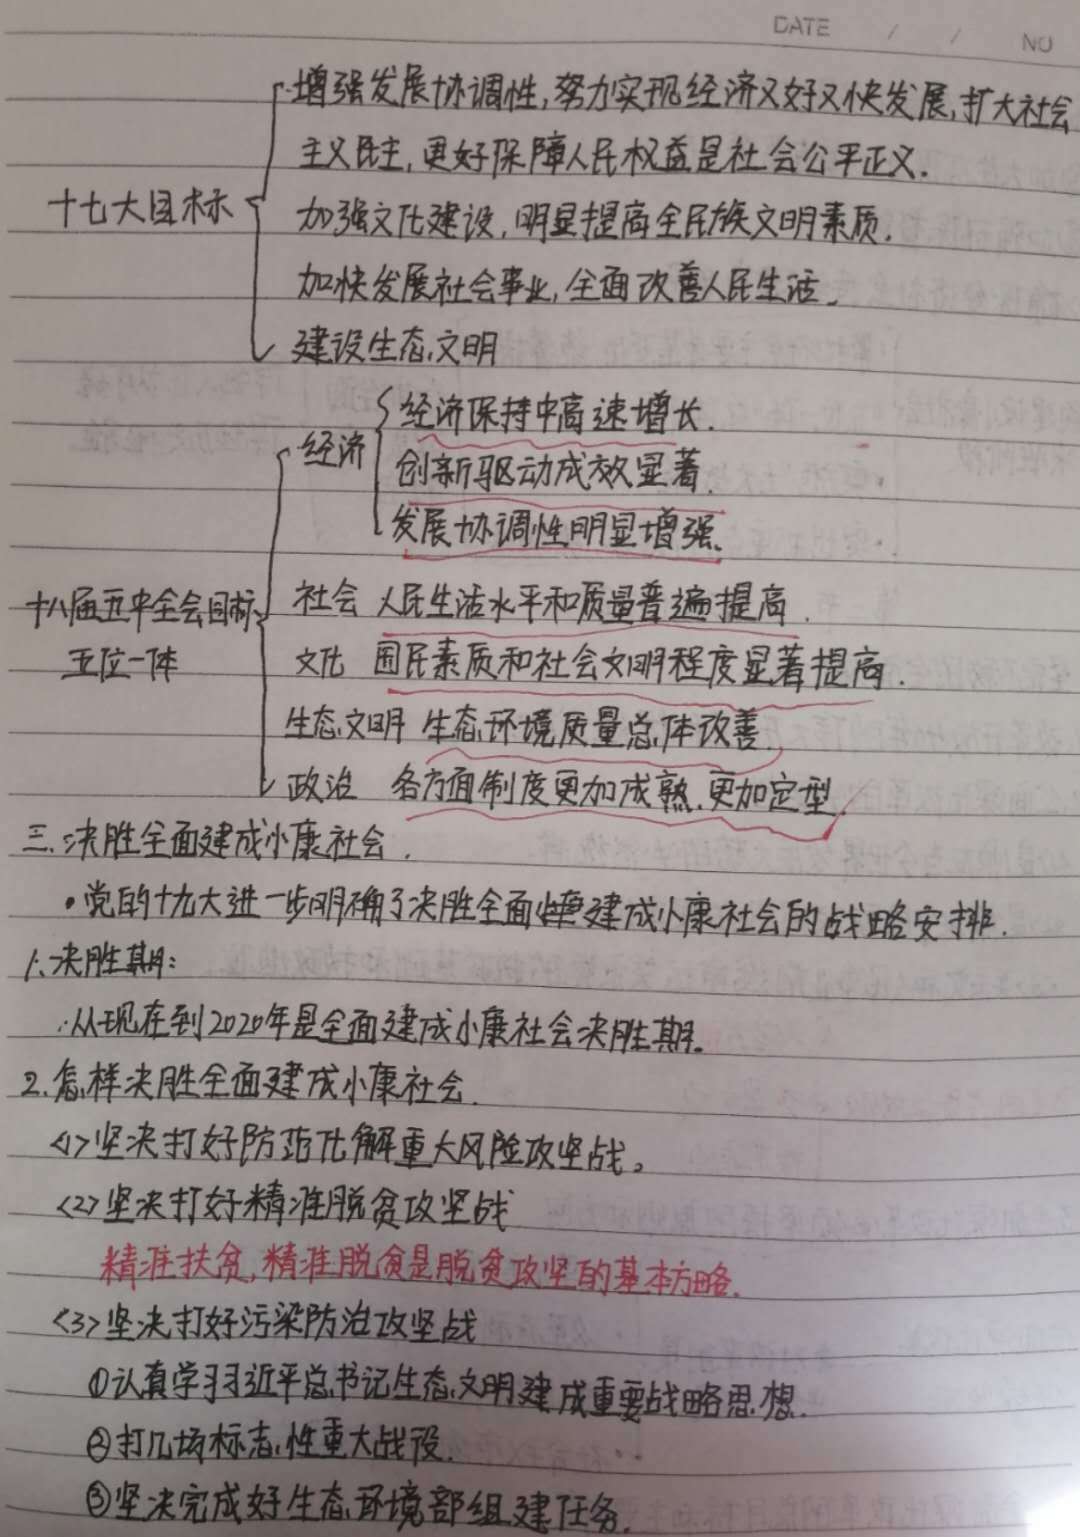 DATE / / NO
增强发展协调性,努力实现经济又好又快发展,扩大社会
主义民主,更好保障人民权益是社会公平正义.
十七大目标
加强文化建设,明显提高全民族文明素质.
加快发展社会事业,全面改善人民生活.
建设生态文明
经济保持中高速增长.
经济
创新驱动成效显著.
发展协调性明显增强.
十八届五中全会目标
五位一体
社会 人民生活水平和质量普遍提高.
文化 国民素质和社会文明程度显著提高.
生态文明 生态环境质量总体改善.
政治 各方面制度更加成熟.更加定型
三.决胜全面建成小康社会.
•党的十九大进一步明确了决胜全面建成小康社会的战略安排.
1.决胜期:
∴从现在到2020年是全面建成小康社会决胜期.
2.怎样决胜全面建成小康社会.
<1>坚决打好防范化解重大风险攻坚战。
<2>坚决打好精准脱贫攻坚战
精准扶贫,精准脱贫是脱贫攻坚的基本方略.
<3>坚决打好污染防治攻坚战
①认真学习习近平总书记生态文明建成重要战略思想.
②打几场标志性重大战役.
③坚决完成好生态环境部组建任务.